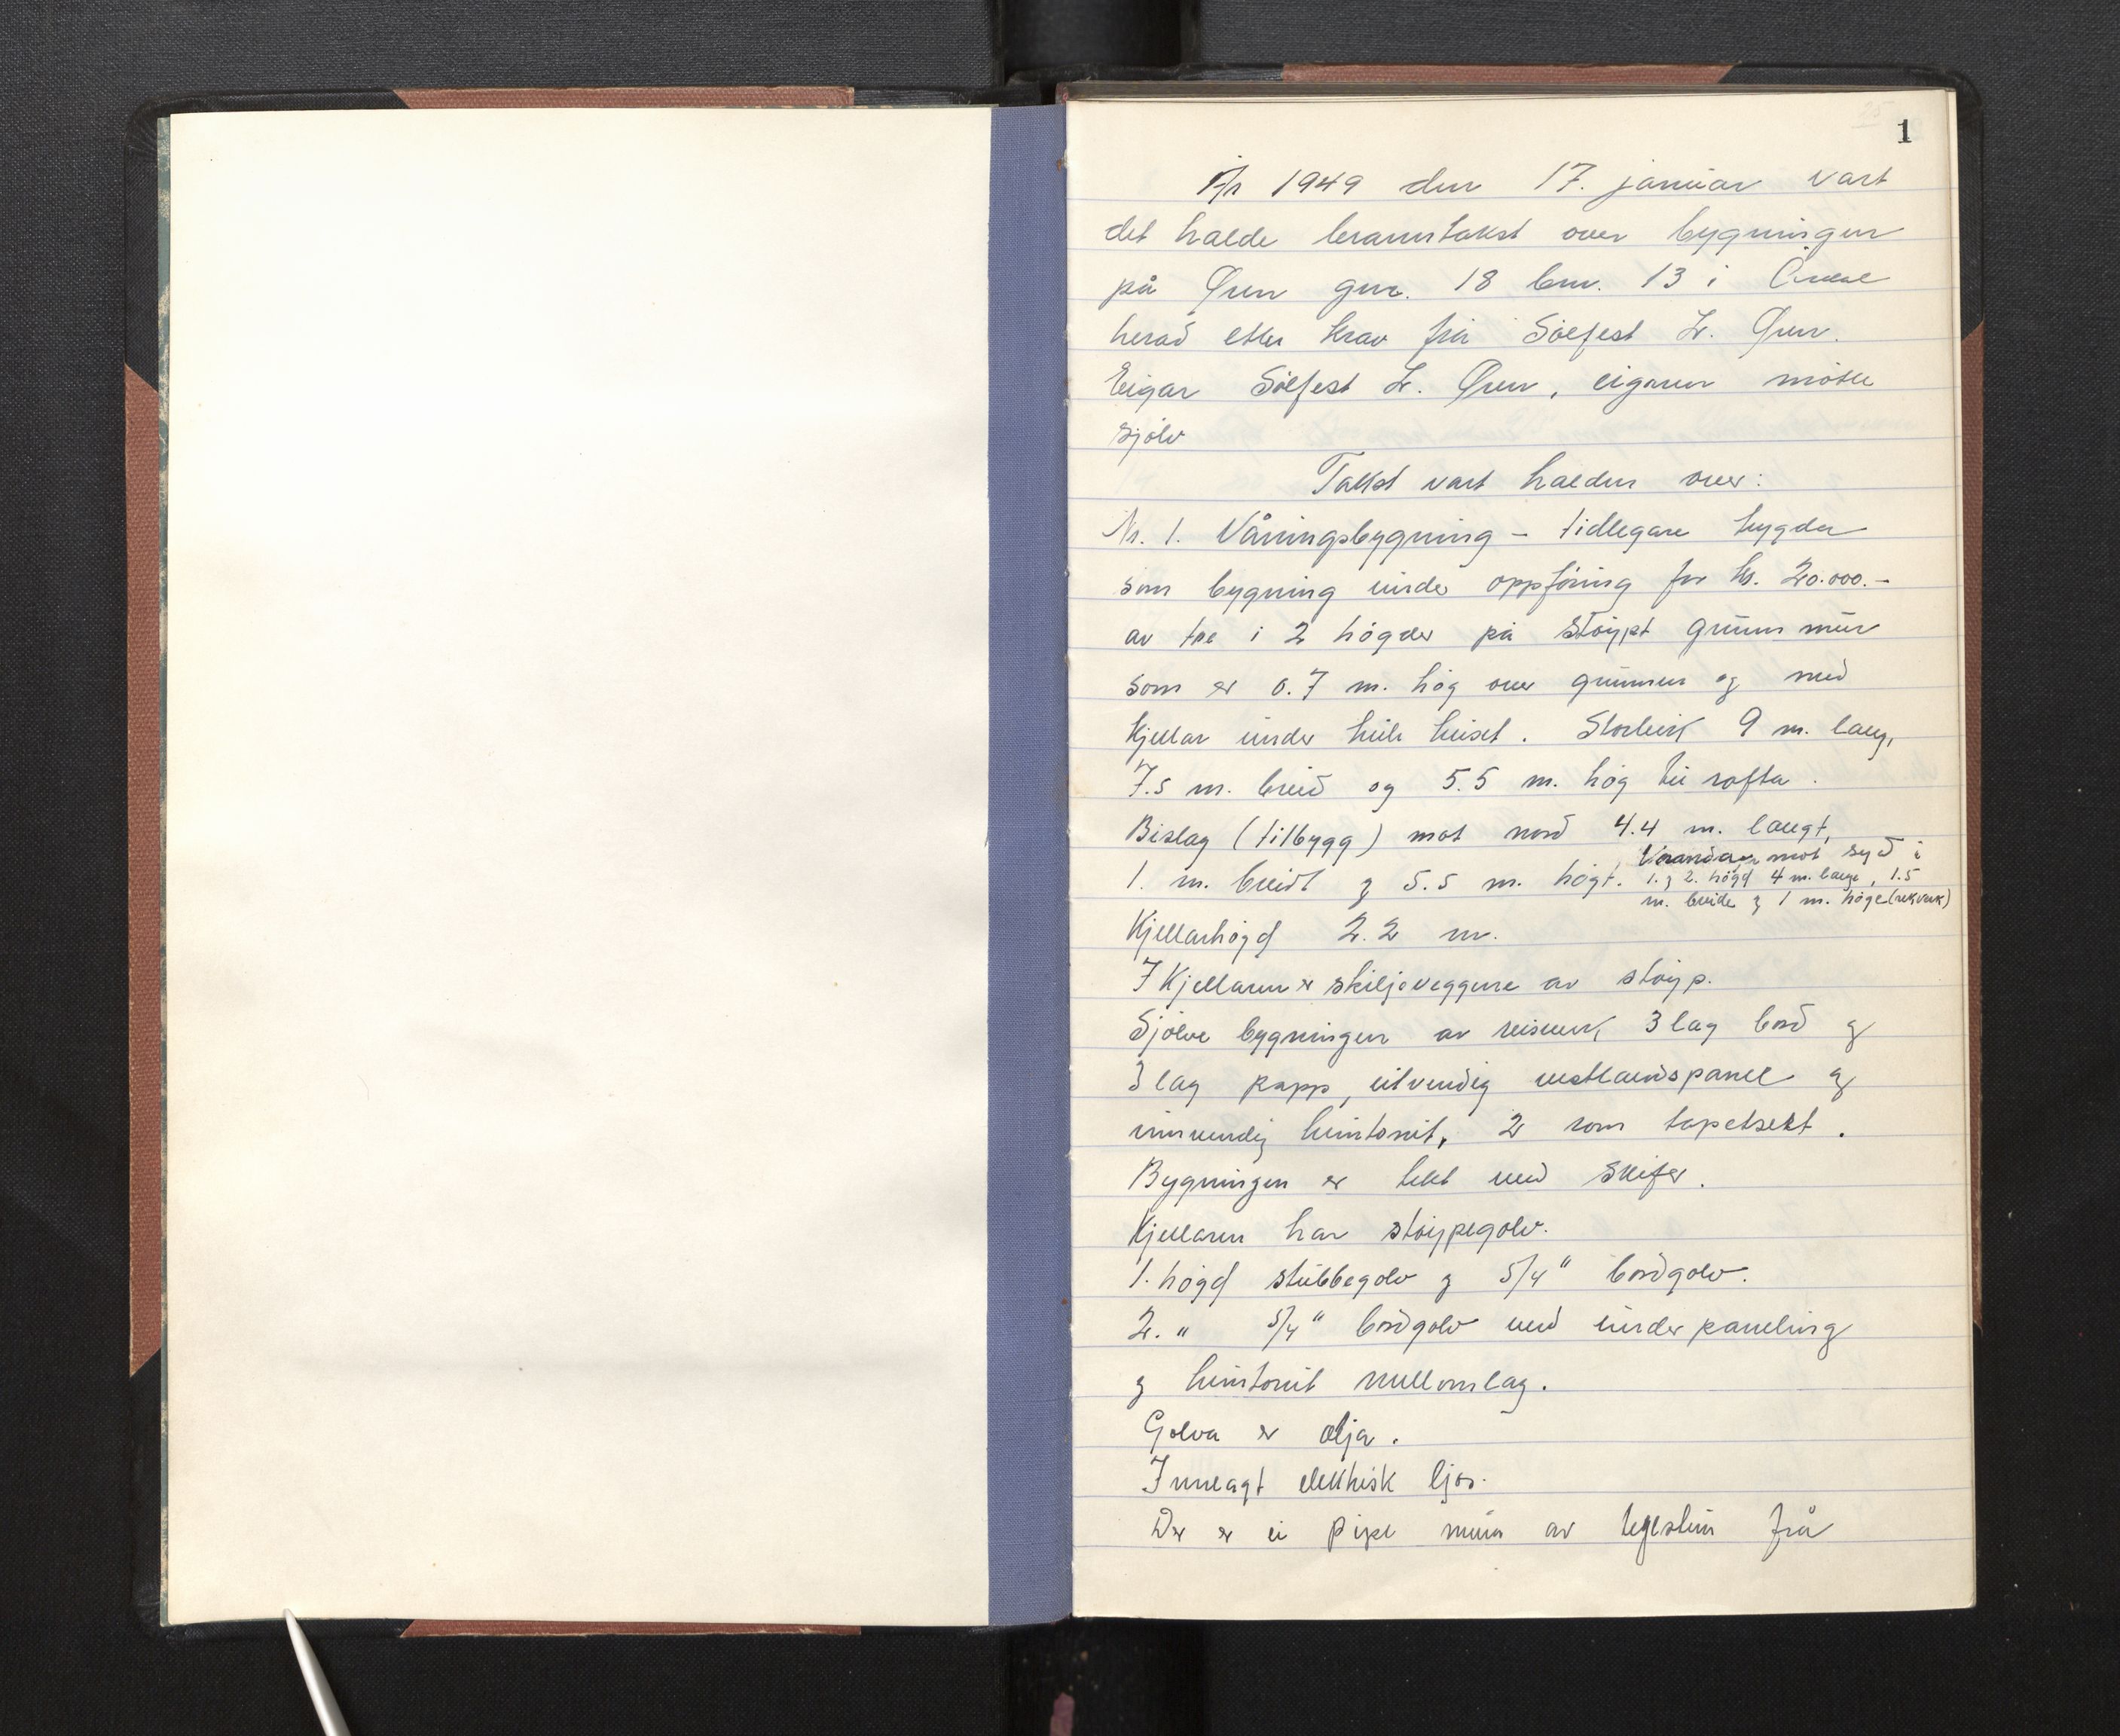 1
År 1949 den 17. januar vart
det halde branntakst over bygningen
på Øren gnr. 18 bnr. 13 i
herad etter krav frå Sólfest L. Øren.
Eigar Sólfest L. Øren, eigaren møtte
sjølv
Takst vart halden over:
Nr. 1. Våningsbygning – tidlegare trygda
som bygning under oppføring for kr. 20.000.-
av tre i 2 høgder på støypt grunnmur
som er 0.7 m. høg over grunnen og med
Kjellar under heile huset. Storleik 9 m. lang,
7.5 m. breid og 5.5 m. høg til rafta.
Bislag (tilbygg) mot nord 4.4 m. langt,
1. m. breidt og 5.5 m. høgt. Verandaer mot syd i
1. og 2. høgd 4 m. lange, 1.5
m. breide og 1 m. høge (rekkverk)
Kjellarhøgd 2.2 m.
I Kjellaren er skiljeveggene av støyp.
Sjølve bygningen av reisverk, 3 lag bord og
3 lag papp, utvendig vestlandspanel og
innvendig huntonit, 2 rom tapetsert.
Bygningen er tekt med skifer.
Kjellaren har støypegolv.
1. høgd stubbegolv og 5/4" bordgolv.
2. " 5/4" bordgolv med underpaneling
og huntonit mellomlag.
Golva er olja.
Innlagt elektrisk ljos.
Der er ei pipe mura av teglstein frå